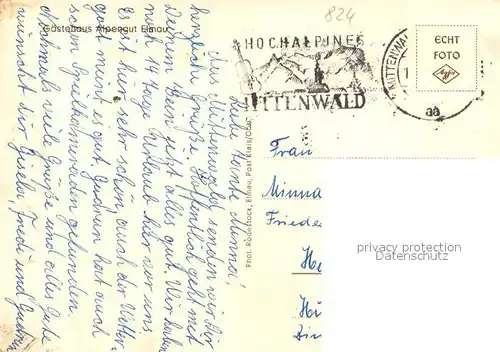 824
Gästehaus Alpengut Elmau
HOCHALPINES
MITTENWALD
MITTENWAL
1
aa
ECHT
FOTO
Phot. Rödelstock, Elmau, Post Klais/Obb.
Liebe Tante Minna!
Aus Mittenwald senden wir Dir
herzliche Grüße. Hoffentlich geht mit
Deinem Bein jetzt alles gut. Wir haben
noch 14 Tage Urlaub hier vor uns
Es ist hier sehr schön, auch der Wetter-
gott meint es gut. Gudrun hat auch
schon Spielkameraden gefunden.
Nochmals viele Grüße und alles Gute
wünscht Dir Friedi und Gudrun
Frau
Minna
Friede
He
Hü
privacy protection
ansichtskartenversand.com